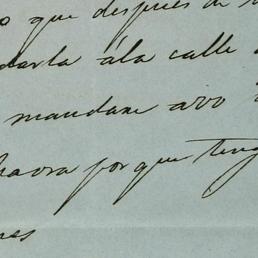 o que despues de
darla ála calle
mandase
haora por que teng
nes